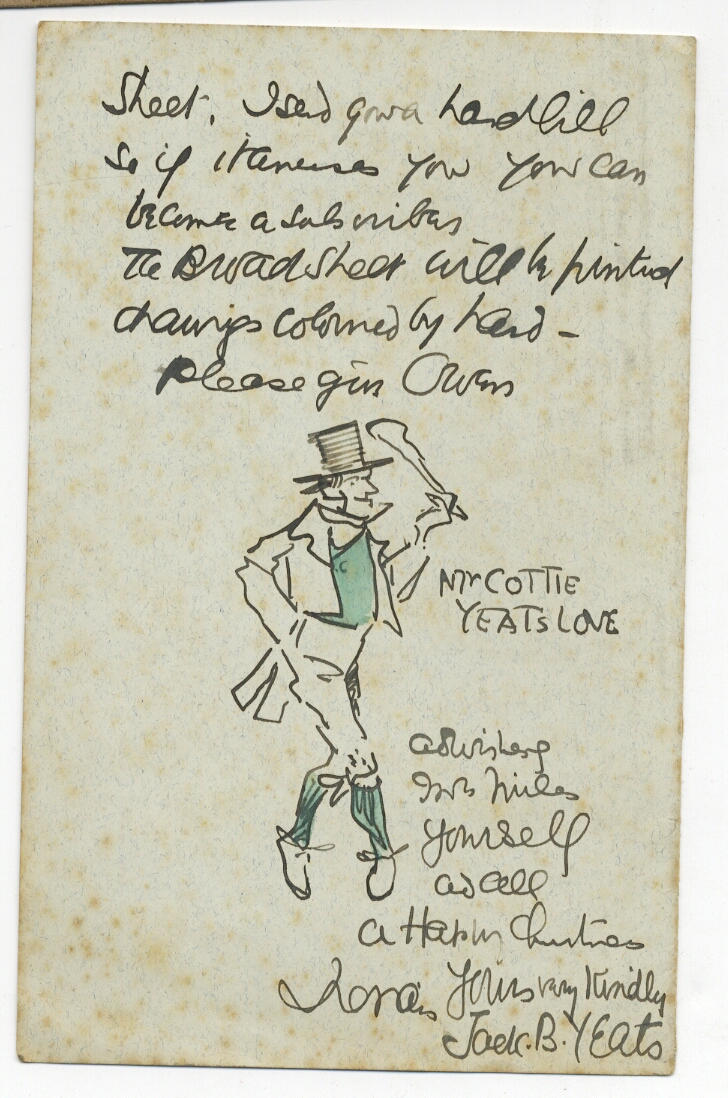 Sheet. I send you a handbill
so if it amuses you you can
become a subscriber
The Broadsheet will be printed
drawings coloured by hand –
Please give Owen
Mr COTTIE
YEATS LOVE
and wishing
Mrs Miles
Yourself
and all
a Happy Christmas
Yours very kindly
Jack. B. YEats